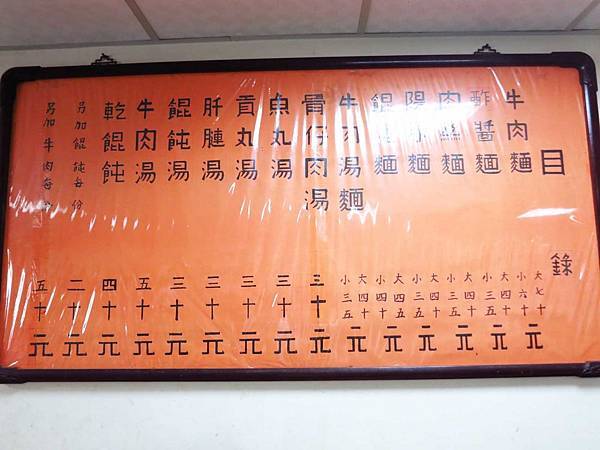 目錄
牛肉麵 大七十元 小六十元
酢醬麵 大四十 小三五元
肉絲麵 大四十 小三五元
陽春麵 大四十 小三五元
餛飩麵 大四五 小四十元
牛肉湯麵 大四十 小三五元
骨仔肉湯 三十元
魚丸湯 三十元
貢丸湯 三十元
肝腱湯 三十元
餛飩湯 三十元
牛肉湯 五十元
乾餛飩 四十元
另加餛飩每份 二十元
另加牛肉每份 五十元